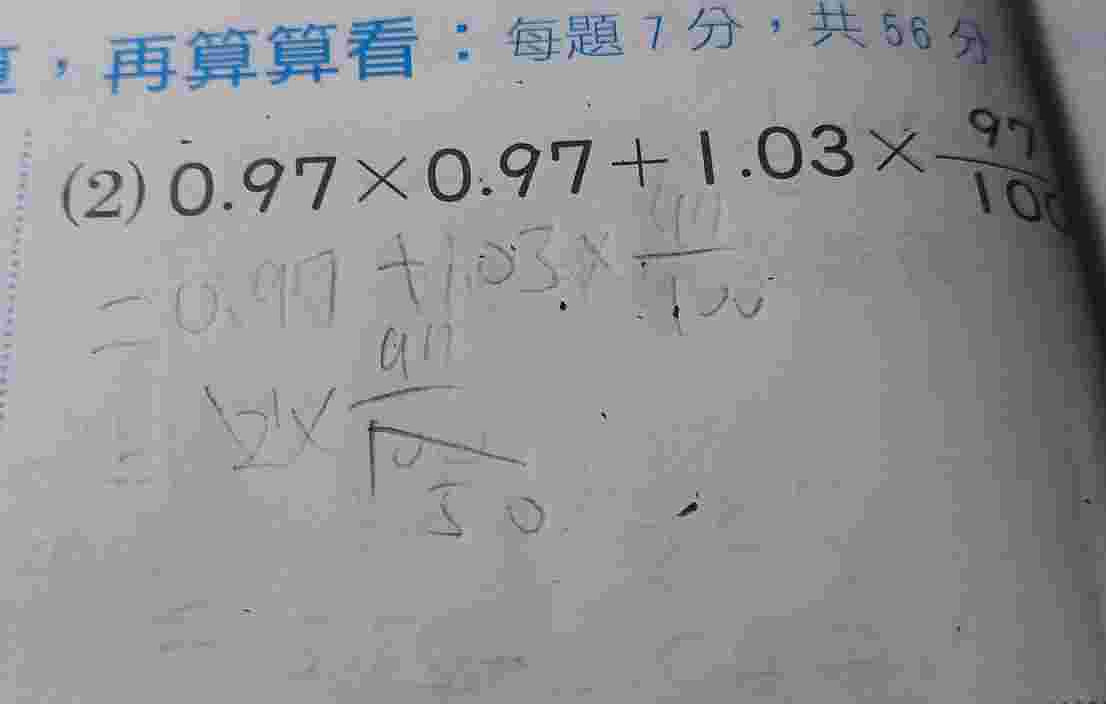 ，再算算看：每題 7 分，共 56 分
(2) 0.97×0.97+1.03×97/100
=0.97 +1.03×97/100
2×97/100
50
=